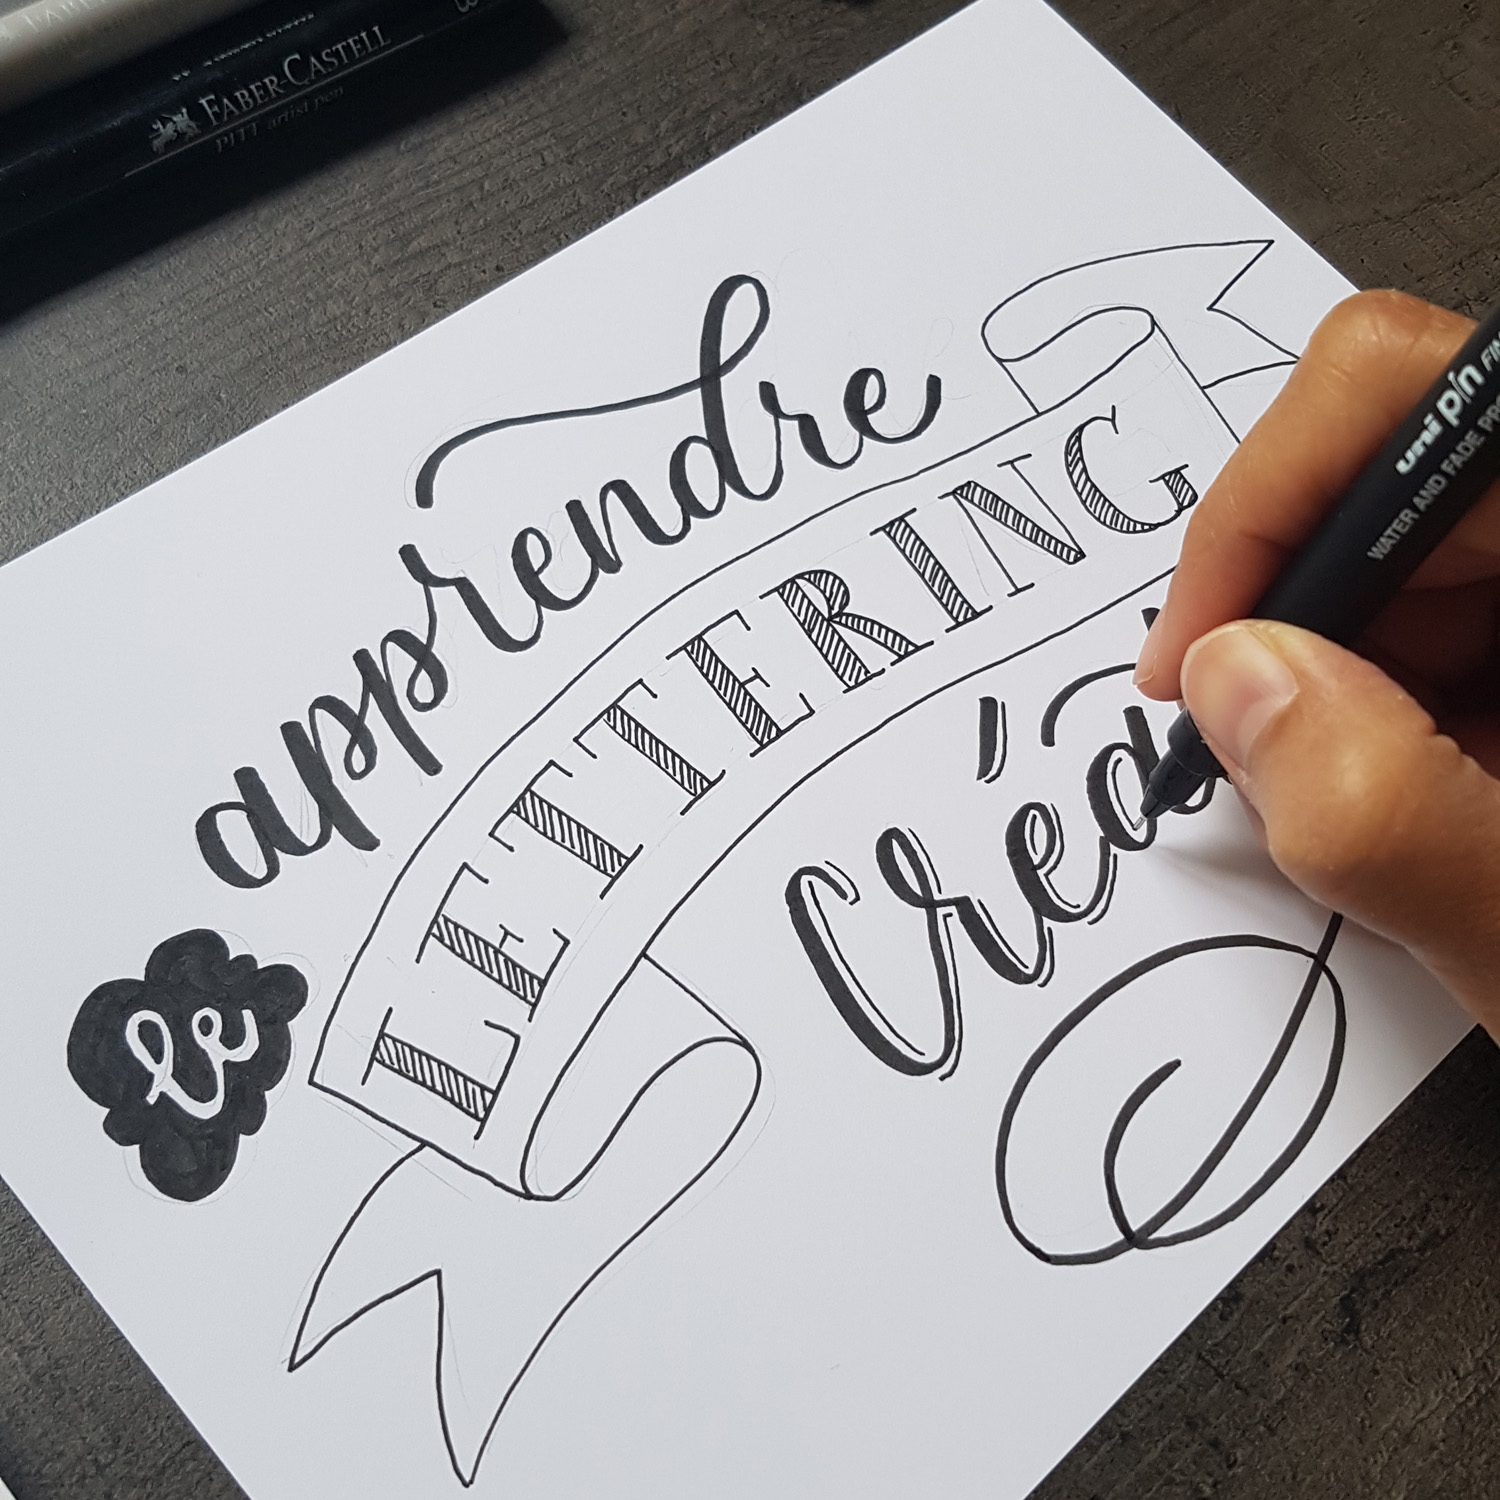 FABER-CASTELL
PITT artist pen
apprendre
le
LETTERING
créa
uni pin FIN
WATER AND FADE PRO